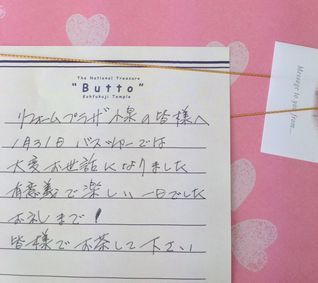 The National Treasure
"Butto"
Kohfukuji Temple
リフォームプラザ小泉の皆様へ
1月31日 バスツアーでは
大変お世話になりました
有意義で楽しい一日でした
お礼まで!
皆様でお茶して下さい
Message to you from...